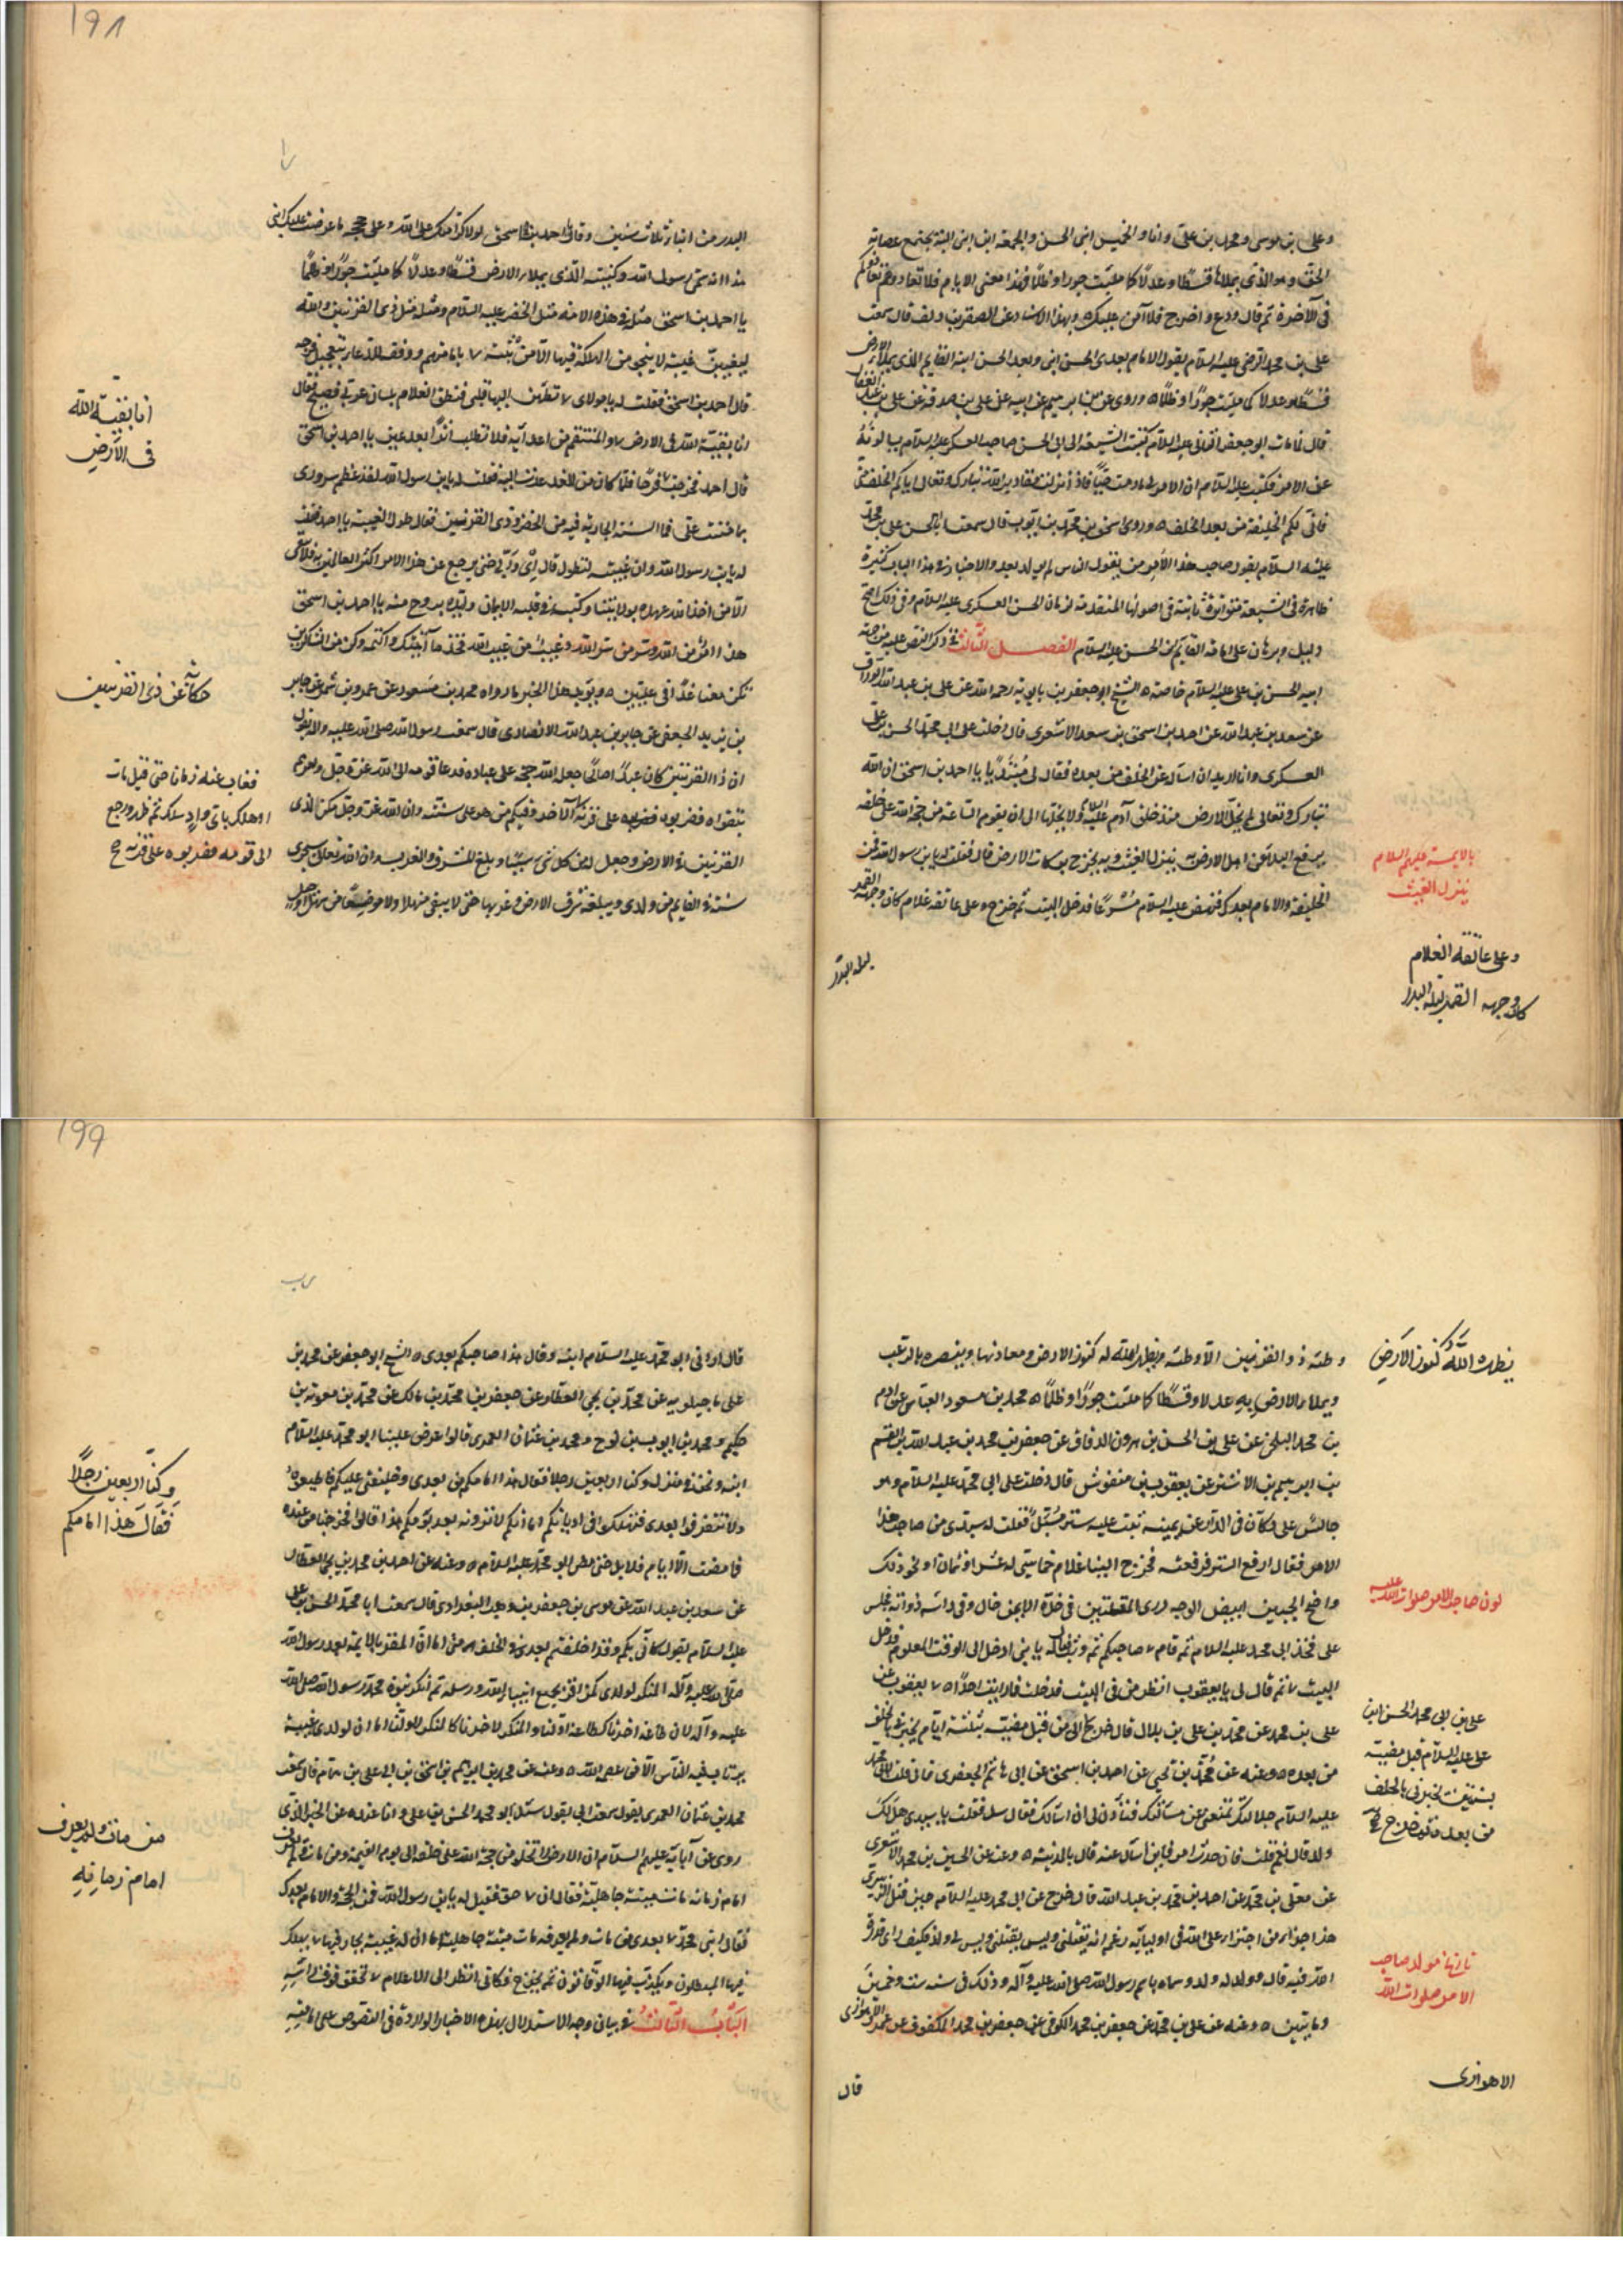 وعلى بن موسى ومحمد بن على وانا والخميس ابنى الحسن والجمعة ابن ابنى اليه تجتمع عصابة
الحق وهو الذى يملاها قسطا وعدلا كما ملئت جورا وظلما فهذا معنى الايام فلا تعادوهم فيعادوكم
فى الآخرة ثم قال ودع واخرج فلا آمن عليك وبهذا الاسناد عن الصقر بن دلف قال سمعت
على بن محمد الرضى عليه السلام يقول الامام بعدى الحسن ابنى وبعد الحسن ابنه القايم الذى يملاء الارض
قسطا وعدلا كما ملئت جورا وظلما وروى عن على بن ابرهيم عن ابيه عن على بن صدقة عن على بن عبد الغفار
قال لما مات ابو جعفر الثانى عليه السلام كتبت الشيعة الى ابى الحسن صاحب العسكر عليه السلام يسالونه
عن الامر فكتب عليه السلام ان الامر لى ما دمت حيا فاذا نزلت مقادير الله تبارك وتعالى اتاكم الخلف منى
فانى لكم الخليفة من بعد الخلف وروى اسحق بن محمد بن ايوب قال سمعت ابا الحسن على بن محمد
عليه السلام يقول صاحب هذا الامر من يقول الناس لم يولد بعد والاخبار فى هذا الباب كثيرة
ظاهرة فى الشيعة متواترة ثابتة فى اصولها المتقدمة لزمان الحسن العسكرى عليه السلام وفى ذلك اوضح
دليل وبرهان على امامة القايم بن الحسن عليه السلام الفصل الثالث فى ذكر النص عليه من جهة
ابيه الحسن بن على عليه السلام خاصة الشيخ ابو جعفر بن بابويه رحمه الله عن على بن عبد الله الوراق
عن سعد بن عبد الله عن احمد بن اسحق بن سعد الاشعرى قال دخلت على ابى محمد الحسن بن على
العسكرى وانا اريد ان اساله عن الخلف من بعده فقال لى مبتدئا يا احمد بن اسحق ان الله
تبارك وتعالى لم يخل الارض منذ خلق آدم عليه السلام ولا يخليها الى ان يقوم الساعة من حجة الله على خلقه
به يرفع البلاء عن اهل الارض به ينزل الغيث وبه يخرج بركات الارض قال فقلت له يابن رسول الله فمن
الخليفة والامام بعدك فنهض عليه السلام مسرعا فدخل البيت ثم خرج وعلى عاتقه غلام كان وجهه القمر
ليلة البدر
بالايمة عليهم السلام
ينزل الغيث
وعلى عاتقه الغلام
كان وجهه القمر ليلة البدر
191
البدر من ابناء ثلاث سنين وقال يا احمد بن اسحق لولا كرامتك على الله وعلى حججه ما عرضت عليك ابنى
هذا انه سمى رسول الله وكنيته الذى يملاء الارض قسطا وعدلا كما ملئت جورا وظلما
يا احمد بن اسحق مثله فى هذه الامة مثل الخضر عليه السلام ومثله مثل ذى القرنين والله
ليغيبن غيبة لا ينجو من الهلكة فيها الا من ثبته بامامتهم ووفقه للدعاء بتعجيل فرجه
قال احمد بن اسحق فقلت له يا مولاى تطمئن اليها قلبى فنطق الغلام بلسان عربى فصيح فقال
انا بقية الله فى الارض والمنتقم من اعدائه فلا تطلب اثرا بعد عين يا احمد بن اسحق
قال احمد فخرجت فرحا فلما كان من الغد عدت اليه فقلت له يابن رسول الله لقد عظم سرورى
بما مننت على فما السنة الجارية فيه من الخضر وذى القرنين فقال طول الغيبة يا احمد فقلت
له يابن رسول الله وان غيبته لتطول قال اى وربى حتى يرجع عن هذا الامر اكثر القائلين به فلا يبقى
الا من اخذ الله عهده بولايتنا وكتب فى قلبه الايمان وايده بروح منه يا احمد بن اسحق
هذا امر من الله وسر من سر الله وغيب من غيب الله فخذ ما آتيتك واكتمه وكن من الشاكرين
تكن معنا غدا فى عليين ويؤيد هذا الخبر ما رواه محمد بن مسعود عن عمرو بن شمر عن جابر
بن يزيد الجعفى عن جابر بن عبد الله الانصارى قال سمعت رسول الله صلى الله عليه وآله يقول
ان ذا القرنين كان عبدا صالحا جعل الله حجة على عباده فدعا قومه الى الله عز وجل وامرهم
بتقواه فضربوه على قرنه الآخر وفيكم من هو على سنته وان الله عز وجل مكن لذى
القرنين فى الارض وجعل له من كل شئ سببا وبلغ المشرق والمغرب وان الله تعالى سيجرى
سنته فى القايم من ولدى ويبلغه شرق الارض وغربها حتى لا يبقى منهلا ولا موضعا من سهل او جبل
انا بقية الله
فى الارض
حكاية عن ذى القرنين
فغاب عنه زمانا حتى قيل مات
او هلك باى واد سلك ثم ظهر ورجع
الى قومه فضربوه على قرنه
وطئه ذو القرنين الا وطئه ويظهر الله له كنوز الارض ومعادنها وينصره بالرعب
ويملاء الارض به عدلا وقسطا كما ملئت جورا وظلما محمد بن مسعود العياشى عن آدم
بن محمد البلخى عن على بن الحسن بن هرون الدقاق عن جعفر بن محمد بن عبد الله بن القسم
بن ابرهيم بن الاشتر عن يعقوب بن منقوش قال دخلت على ابى محمد عليه السلام وهو
جالس على دكان فى الدار عن يمينه بيت عليه ستر مسبل فقلت له سيدى من صاحب هذا
الامر فقال ارفع الستر فرفعته فخرج الينا غلام خماسى له عشر او ثمان او نحو ذلك
واضح الجبين ابيض الوجه درى المقلتين فى خده الايمن خال وفى راسه ذوابة فجلس
على فخذ ابى محمد عليه السلام ثم قام صاحبكم ثم وثب فقال له يا بنى ادخل الى الوقت المعلوم فدخل
البيت ثم قال لى يا يعقوب انظر من فى البيت فدخلت فما رايت احدا يعقوب عن
على بن محمد عن محمد بن على بن بلال قال خرج الى من قبل مضيه بثلثة ايام يخبرنى بالخلف
من بعده وعنه عن محمد بن يحيى عن احمد بن اسحق عن ابى هاشم الجعفرى قال قلت لابى محمد
عليه السلام جلالتك تمنعنى عن مسالتك فتاذن لى ان اسالك فقال سل فقلت يا سيدى هل لك
ولد قال نعم قلت فان حدث امر فاين اسال عنه قال بالمدينة وعنه عن الحسين بن محمد الاشعرى
عن معلى بن محمد عن احمد بن محمد بن عبد الله قال خرج عن ابى محمد عليه السلام حين قتل الزبيرى
هذا جزاء من اجترا على الله فى اوليائه زعم انه يقتلنى وليس لى ولد فكيف راى قدرة
الله فيه قال وولد له ولد وسماه باسم رسول الله صلى الله عليه وآله وذلك فى سنه ست وخمسين
ومايتين وعنه عن على بن محمد عن جعفر بن محمد الكوفى عن جعفر بن محمد المكفوف عن عمرو الاهوازى
قال
يظهر الله كنوز الارض
لون صاحب الامر صلوات الله عليه
على بن ابى محمد الحسن ابن
على عليه السلام قبل مضيه
بسنتين يخبرنى بالخلف
من بعده ثم خرج
تاريخ مولد صاحب
الامر صلوات الله
الاهوازى
199
قال ارانى ابو محمد عليه السلام ابنه وقال هذا صاحبكم بعدى الشيخ ابو جعفر عن محمد بن
على ماجيلويه عن محمد بن يحيى العطار عن جعفر بن محمد بن مالك عن محمد بن معوية بن
حكيم ومحمد بن ايوب بن نوح ومحمد بن عثمان العمرى قالوا عرض علينا ابو محمد عليه السلام
ابنه ونحن فى منزله وكنا اربعين رجلا فقال هذا امامكم من بعدى وخليفتى عليكم فاطيعوه
ولا تتفرقوا بعدى فتهلكوا فى اديانكم اما انكم لا ترونه بعد يومكم هذا قالوا فخرجنا من عنده
فما مضت الا ايام قلايل حتى مضى ابو محمد عليه السلام وعنه عن احمد بن محمد بن يحيى العطار
عن سعد بن عبد الله عن موسى بن جعفر بن وهب البغدادى قال سمعت ابا محمد الحسن بن على
عليه السلام يقول كانى بكم وقد اختلفتم بعدى فى الخلف منى اما ان المقر بالايمة بعد رسول الله
صلى الله عليه وآله المنكر لولدى كمن اقر بجميع انبياء الله ورسله ثم انكر نبوة محمد رسول الله صلى الله
عليه وآله لان طاعة اخرنا كطاعة اولنا والمنكر لاخرنا كالمنكر لاولنا اما ان لولدى غيبة
يرتاب فيها الناس الا من عصمه الله وعنه عن محمد بن ابرهيم بن اسحق عن ابى على بن همام قال سمعت
محمد بن عثمان العمرى يقول سمعت ابى يقول سئل ابو محمد الحسن بن على وانا عنده عن الخبر الذى
روى عن آبايه عليهم السلام ان الارض لا تخلو من حجة الله على خلقه الى يوم القيمة ومن مات ولم يعرف
امام زمانه مات ميتة جاهلية فقال ان حق فقيل له يابن رسول الله فمن الحجة والامام بعدك
فقال ابنى محمد بعدى من مات ولم يعرفه مات ميتة جاهلية اما ان له غيبة يحار فيها يهلك
فيها المبطلون ويكذب فيها الوقاتون ثم يخرج فكانى انظر الى الاعلام تخفق فوق راسه
الباب الثالث فى بيان وجه الاستدلال بهذه الاخبار الواردة فى النصوص على امامته
وكنا اربعين رجلا
فقال هذا امامكم
من مات ولم يعرف
امام زمانه